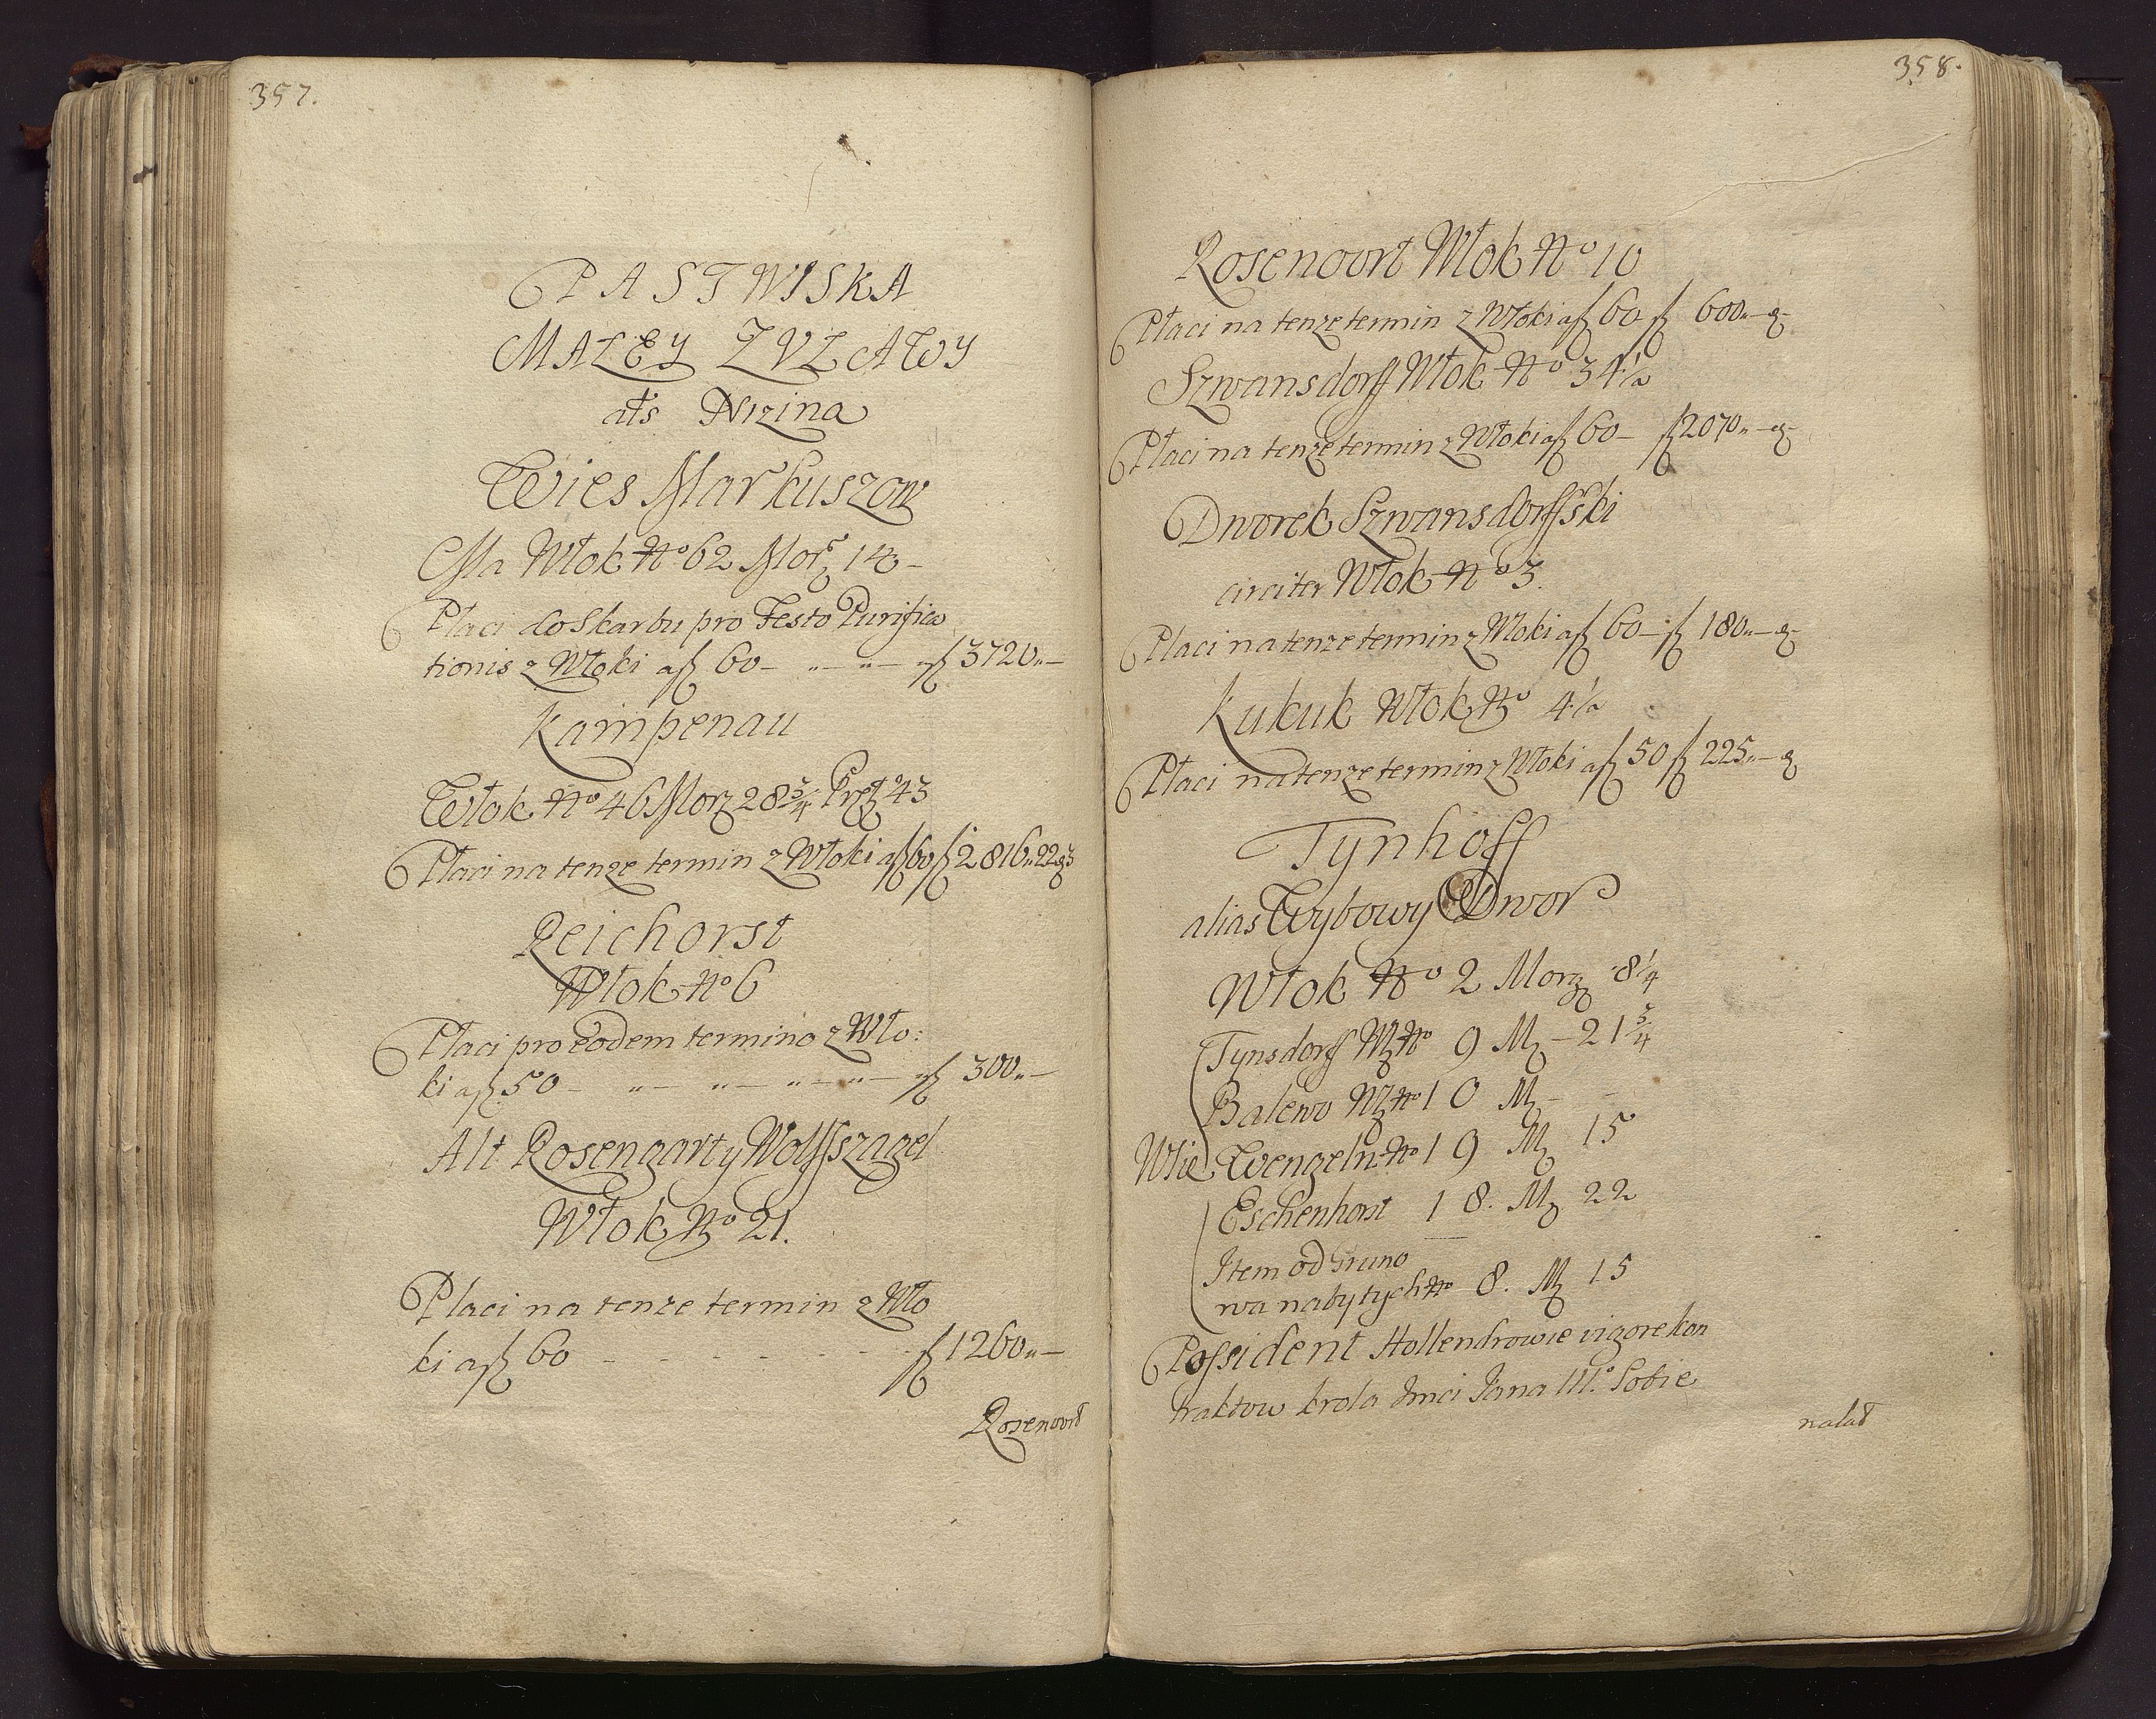 357.
PASTWISKA
MALEY ZVŁAWY
als Nizina
Wies Markuszow
Ma Włok No 62 Morz 14 -
Płaci do Skarbu pro Festo Purifica
tionis z Włoki af 60 - „ — „ — f 3720 „ —
Kampenau
Włok No 46 Morz 28 3/4 Pręt 43
Płaci na tenze termin z Włoki af 60 f 2816 „ 22 g 3
Reichorst
Włok No 6
Płaci pro eodem termino z Wło:
ki af 50 - „ — „ — „ — „ — f 300 „ —
Alt Rosengart y Wolffszagel
Włok No 21.
Płaci na tenze termin z Wło
ki af 60 - - - - - - - f 1260 „ —
Rozenoort
358.
Rosenoort Włok No 10
Płaci na tenze termin z Włoki af 60 f 600 „ — g -
Szwansdorff Włok No 34 1/2
Płaci na tenze termin z Włoki af 60 - f 2070 „ — g -
Dworek Szwansdorffski
circiter Włok No 3.
Płaci na tenze termin z Włoki af 60 - f 180 „ — g -
Kukuk Włok No 4 1/2
Płaci na tenze termin z Włoki af 50 f 225 „ — g
Tynhoff
alias Wybowy Dwor
Włok No 2 Morz 8 1/4
Tynsdorff Wł No 9 M - 21 3/4
Balewo Wł No 10 M - -
Wsie Wengeln No 19 M 15
Eschenhorst 18. M 22
Item od Gruno
wa nabytych No 8. M 15
Possident Hollendrowie vigore kon
traktow krola Jmci Jana III. Sobie
nalad